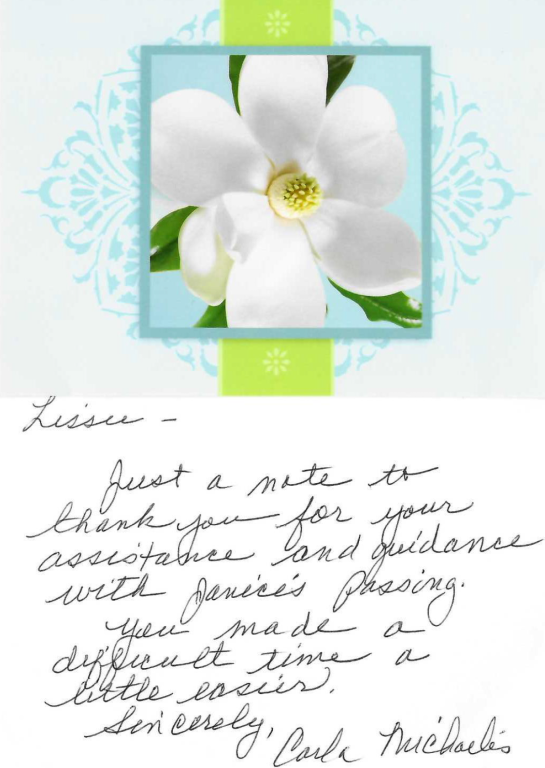 Lissee -
Just a note to
thank you for your
assistance and guidance
with Janice's passing.
You made a
difficult time a
little easier.
Sincerely,
Carla Michaelis